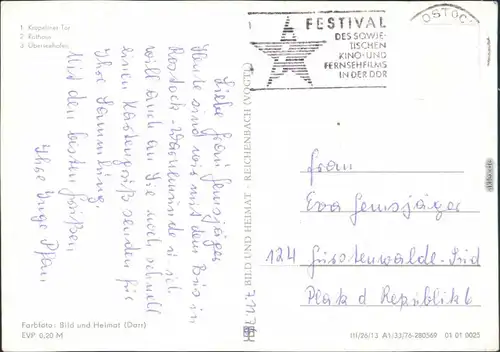 1 Kröpeliner Tor
2 Rathaus
3 Überseehafen
Liebe Frau Gensjäger
Heute sind wir mit dem Bus in
Rostock-Warnemünde u. ich
will auch an Sie noch schnell
einen Kartengruß senden für
Ihre Sammlung.
Mit den besten Grüßen
Ihre Inge Pfau
Farbfoto: Bild und Heimat (Darr)
EVP 0,20 M
BILD UND HEIMAT · REICHENBACH (VOGTL)
FESTIVAL
DES SOWJE-
TISCHEN
KINO- UND
FERNSEHFILMS
IN DER DDR
OSTOC
Frau
Eva Gensjäger
124 Fürstenwalde-Süd
Platz d Republik 6
III/26/13 A1/33/76-280569 01 01 0025